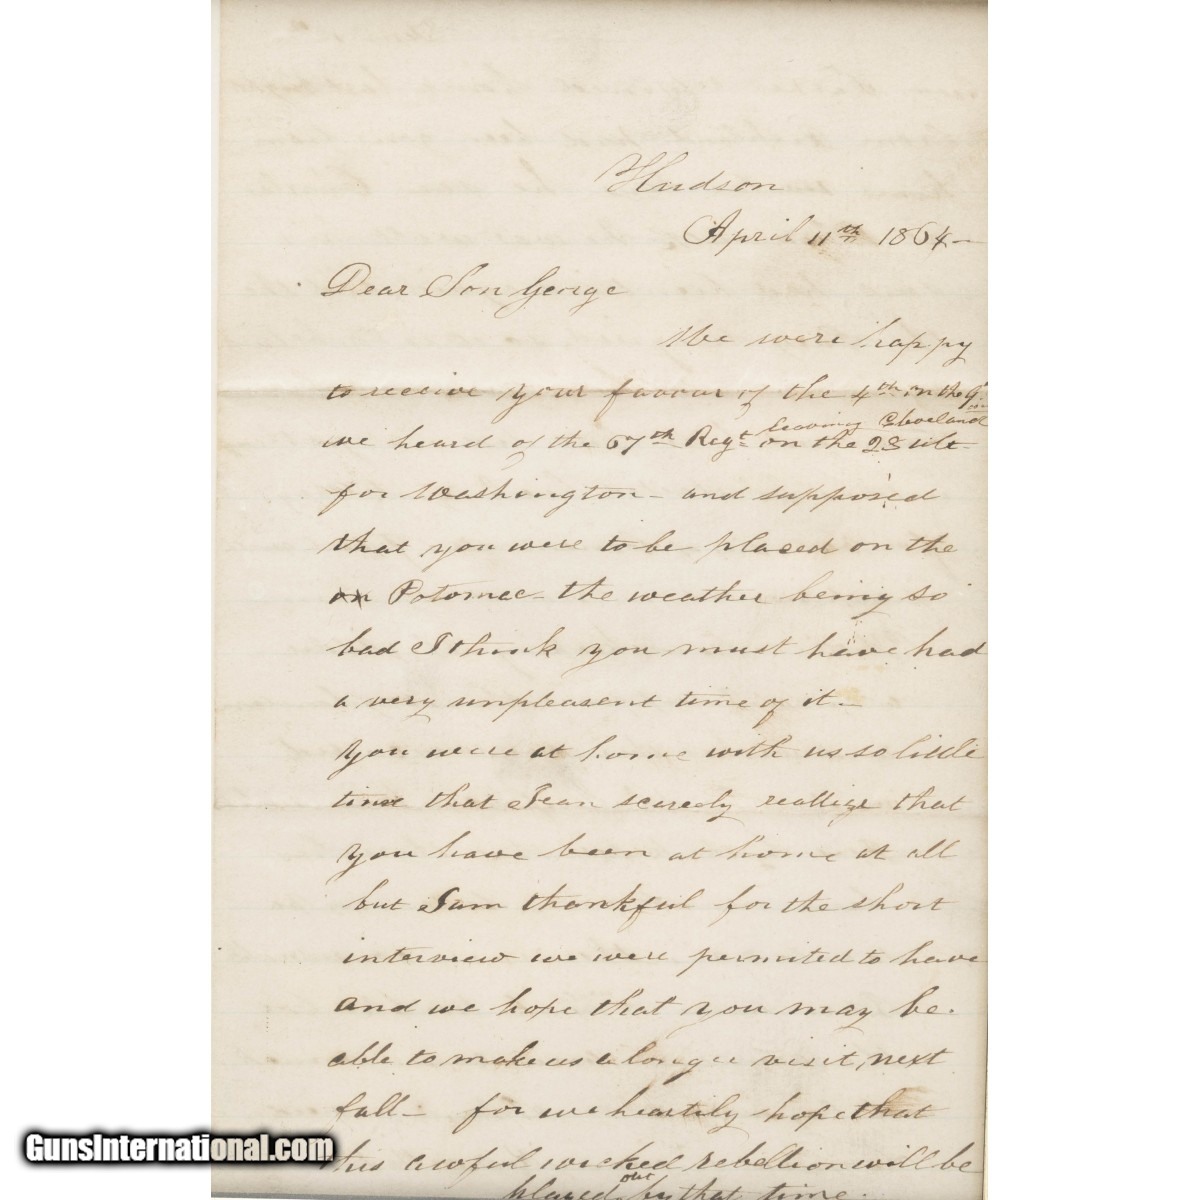 Hudson
April 11th 1864-
Dear Son George
We were happy
to receive your favour of the 4th on the 9th
leaving Cleveland
we heard of the 67th Regt on the 28 ult-
for Washington - and supposed
that you were to be placed on the
on Potomac - the weather being so
bad I think you must have had
a very unpleasent time of it -
you were at home with us so little
time that I can scarcely reallize that
you have been at home at all
but I am thankful for the short
interview we were permited to have
and we hope that you may be
able to make us a longer visit, next
fall - for we heartily hope that
this awful wicked rebellion will be
out
by that time
GunsInternational.com